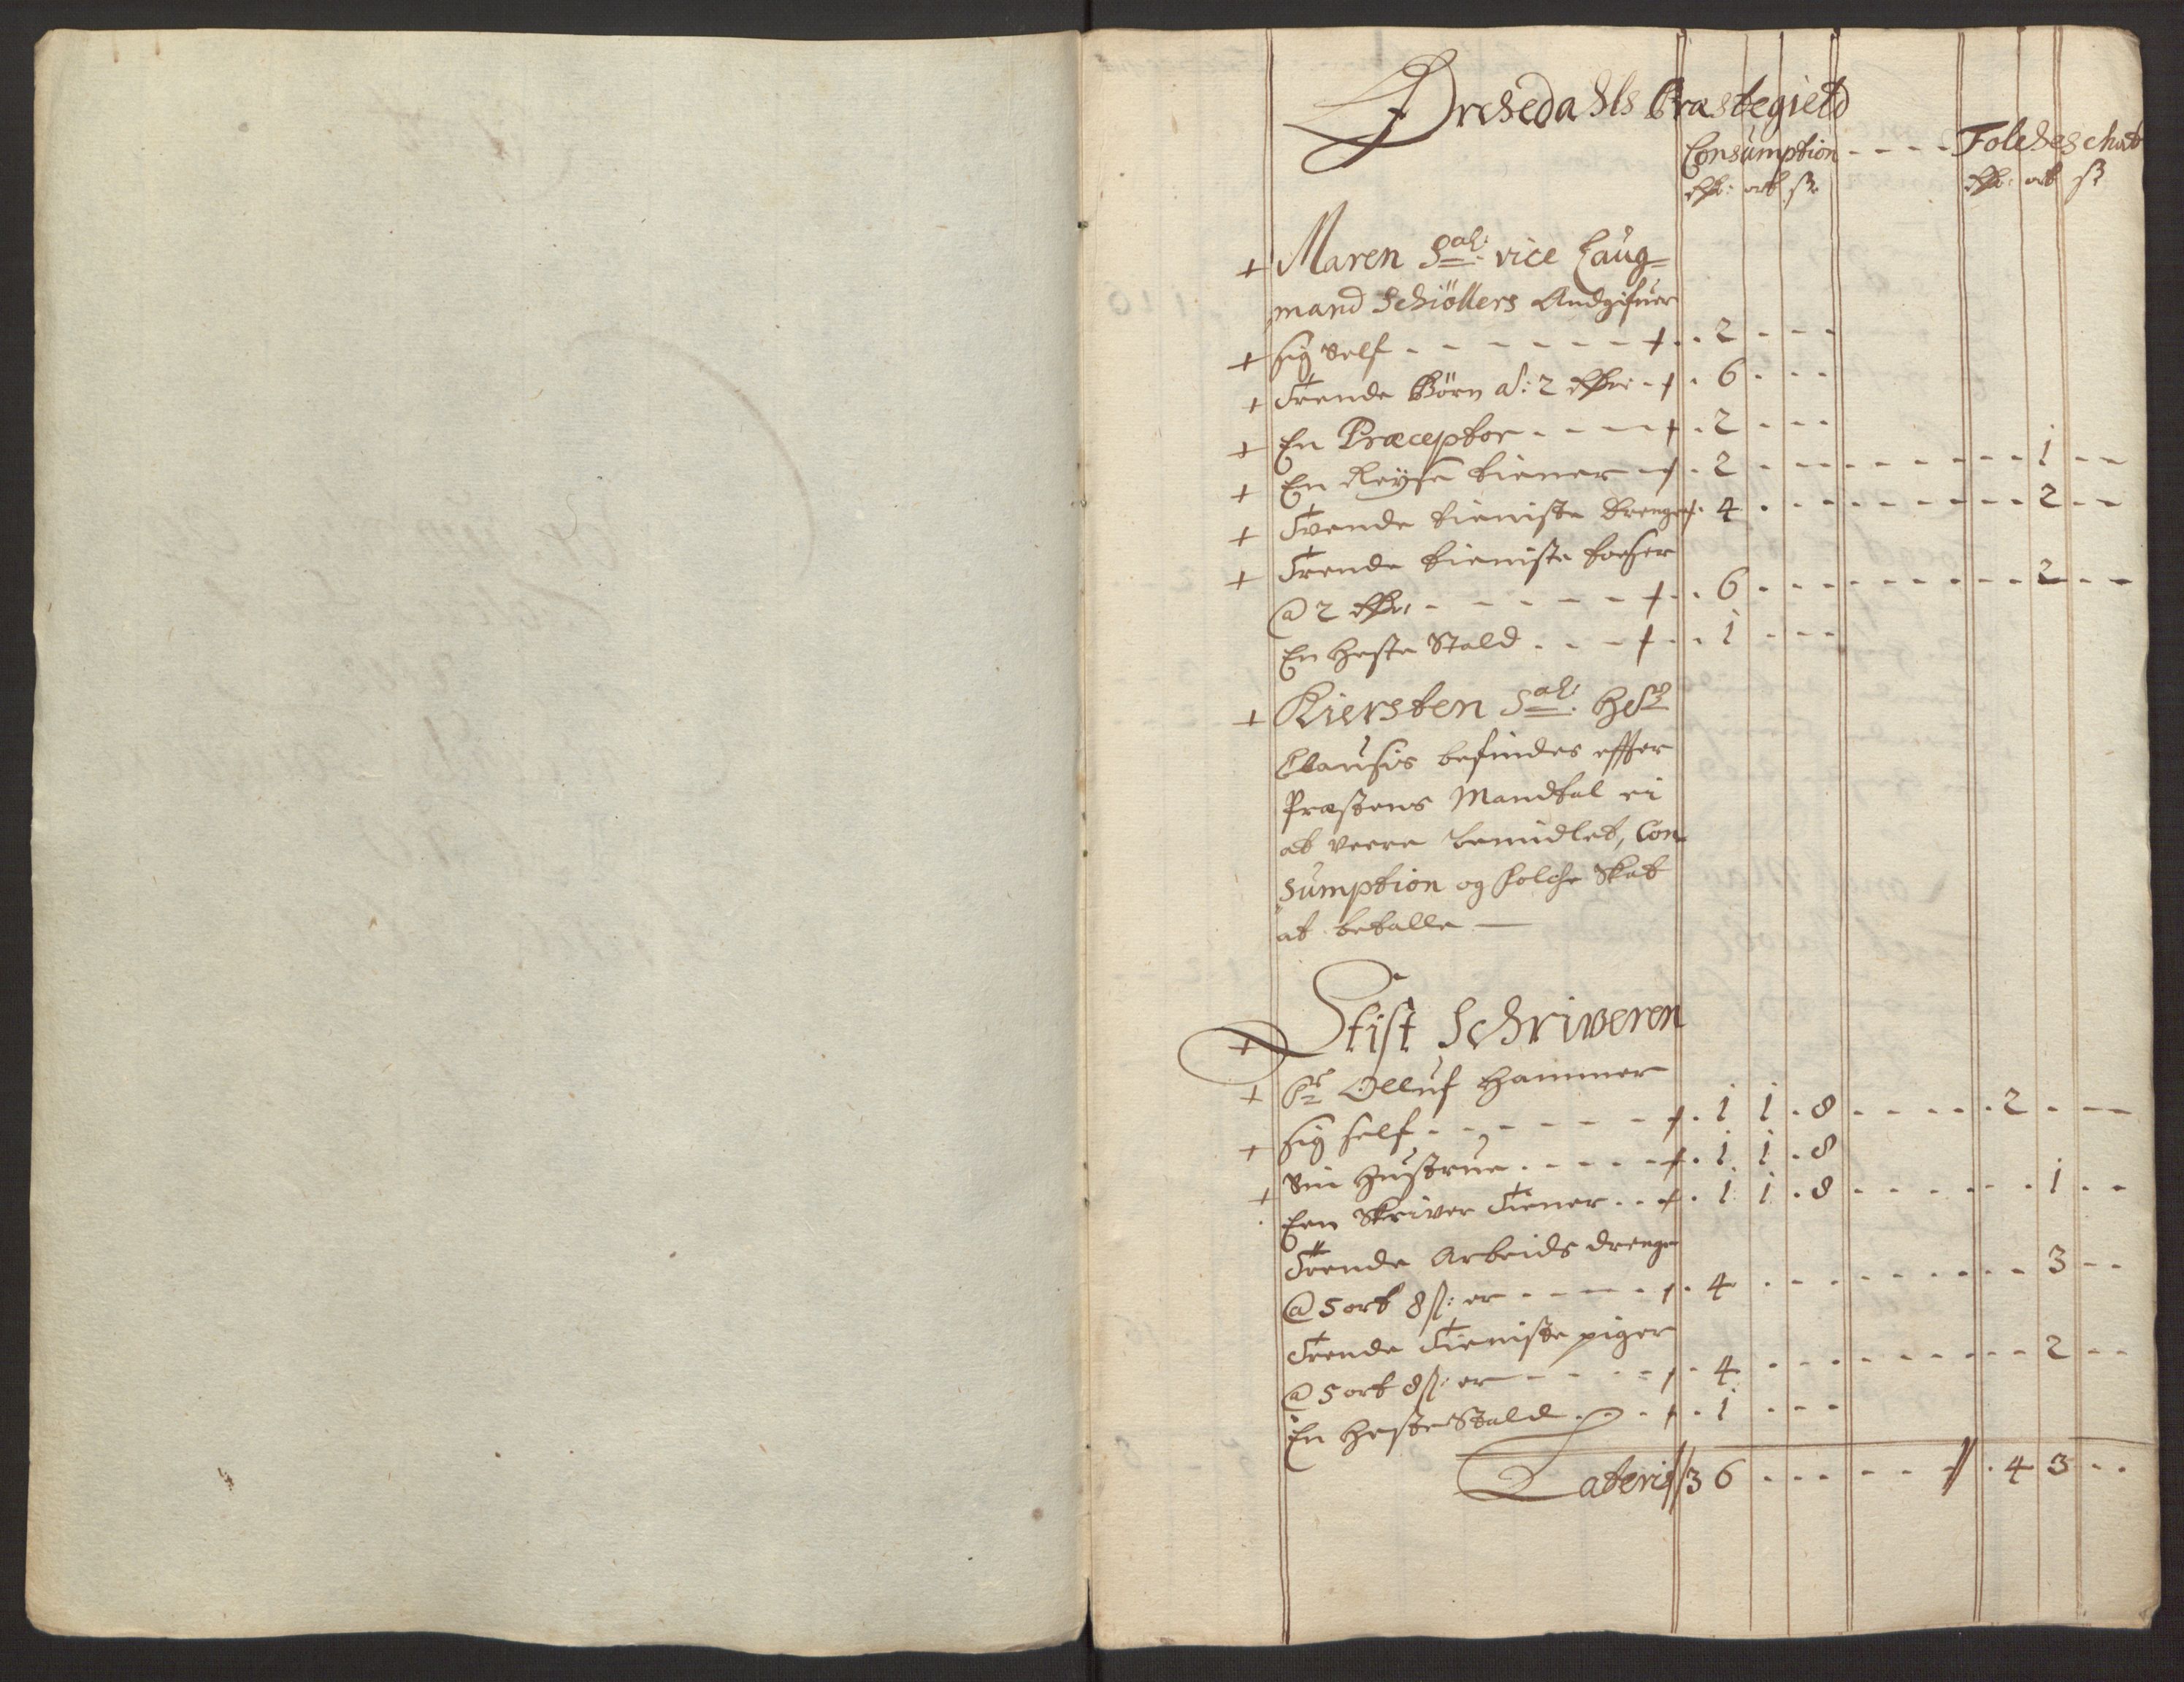 Ørchedahls Præstegield
Consumption - - - - Folcheschat
rdr: ort ß rdr: ort ß
+ Maren Sal: vice Laug=
mand Schiöllers Andgifuer
+ sig Self - - - - - - + . 2 - - -
+ Trende Börn a: 2 rdr - + . 6 . - -
+ En Præceptor - - - + . 2 - - -
+ En Reyse tiener - + . 2 - - - - - - - - 1 - -
+ Tvende tieniste Drenge + . 4 . - - - - - - - 2 - -
+ Trende tieniste
@ 2 rdr - - - - - + . 6 - - - - - - - - 2 - -
En Heste Stald . . - + . . 1 - - -
+ Kiersten Sal: Hr
Clausis befindes effter
Præstens Mandtal ei
at veere bemidlet, Con
sumption og folche Skat
at betalle —
+ Stift Schriweren
+ Sr Olluf Hammer
+ sig self - - - - - - + . 1 1 . 8 - - - - . 2 . - -
+ Sin Hustrue . - - - + . 1 1 . 8
Een Skriver Tiener . . + . 1 1 . 8 - - - - - . 1 . -
Trende Arbeids drenge
@ 5 ort 8 ß: er - - - - + . 4 . - - - - - - - 3 - -
Trende Tieniste piger
@ 5 ort 8 ß: er - - - - + . 4 . - - - - - - - 2 - -
En Heste Stald . - . + . 1 - - -
Lateris // 36 . - - - - - // . 4 3 - .